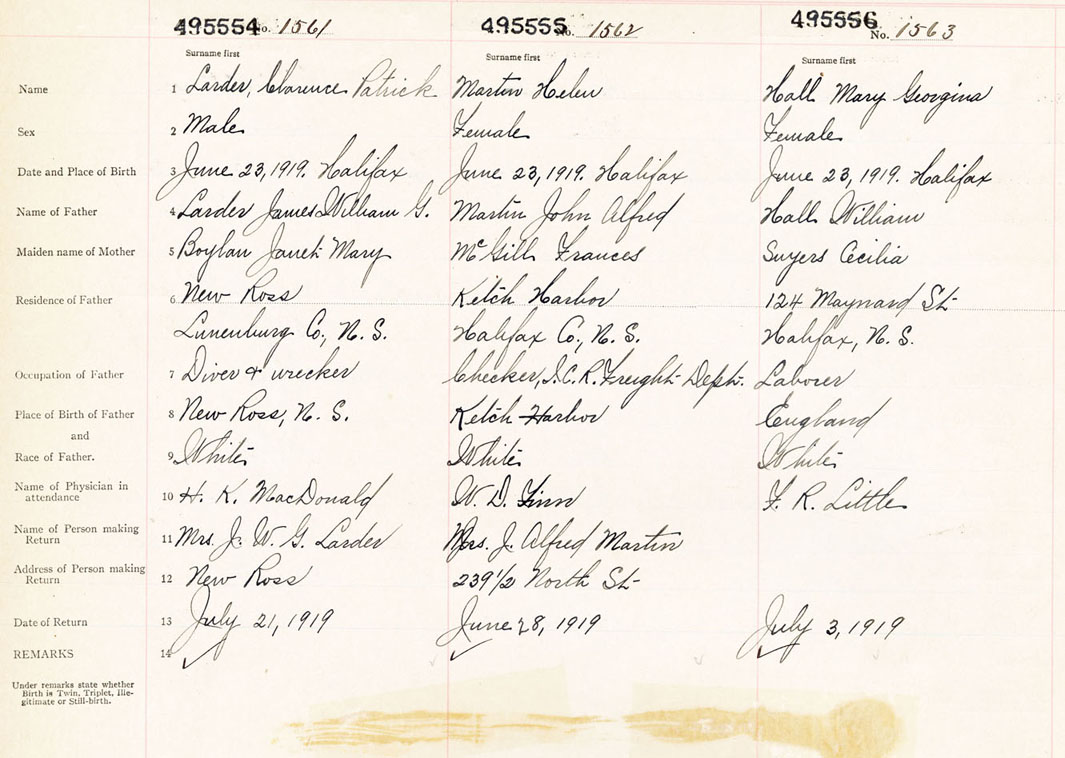 495554 No. 1561 495555 No. 1562 495556 No. 1563
Surname first Surname first Surname first
Name 1 Larder, Clarence Patrick Martin Helen Hall Mary Georgina
Sex 2 Male Female Female
Date and Place of Birth 3 June 23, 1919. Halifax June 23, 1919. Halifax June 23, 1919. Halifax
Name of Father 4 Larder James William G. Martin John Alfred Hall William
Maiden name of Mother 5 Boylan Janet Mary McGill Frances Suyers Cecilia
Residence of Father 6 New Ross Ketch Harbor 124 Maynard St
Lunenburg Co., N. S. Halifax Co., N. S. Halifax, N. S.
Occupation of Father 7 Diver & wrecker Checker, I.C.R. Freight Dept. Laborer
Place of Birth of Father 8 New Ross, N. S. Ketch Harbor England
and
Race of Father. 9 White White White
Name of Physician in attendance 10 H. K. MacDonald W. D. Finn F. R. Little
Name of Person making Return 11 Mrs. J. W. G. Larder Mrs. J. Alfred Martin
Address of Person making Return 12 New Ross 239 1/2 North St
Date of Return 13 July 21, 1919 June 28, 1919 July 3, 1919
REMARKS 14
Under remarks state whether
Birth is Twin, Triplet, Ille-
gitimate or Still-birth.